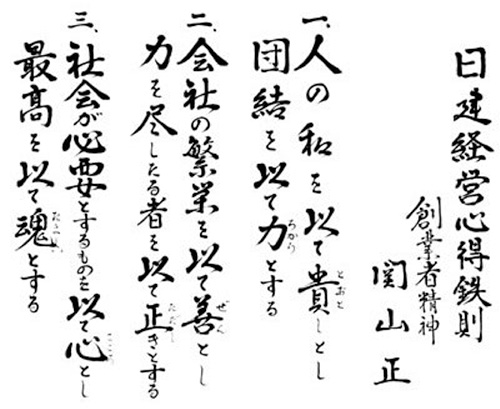 日建経営心得鉄則
創業者精神
関山正
一、人の和を以て貴しとし
とおと
団結を以て力とする
ちから
二、会社の繁栄を以て善とし
ぜん
力を尽したる者を以て正きとする
ただし
三、社会が必要とするものを以て心とし
こころ
最高を以て魂とする